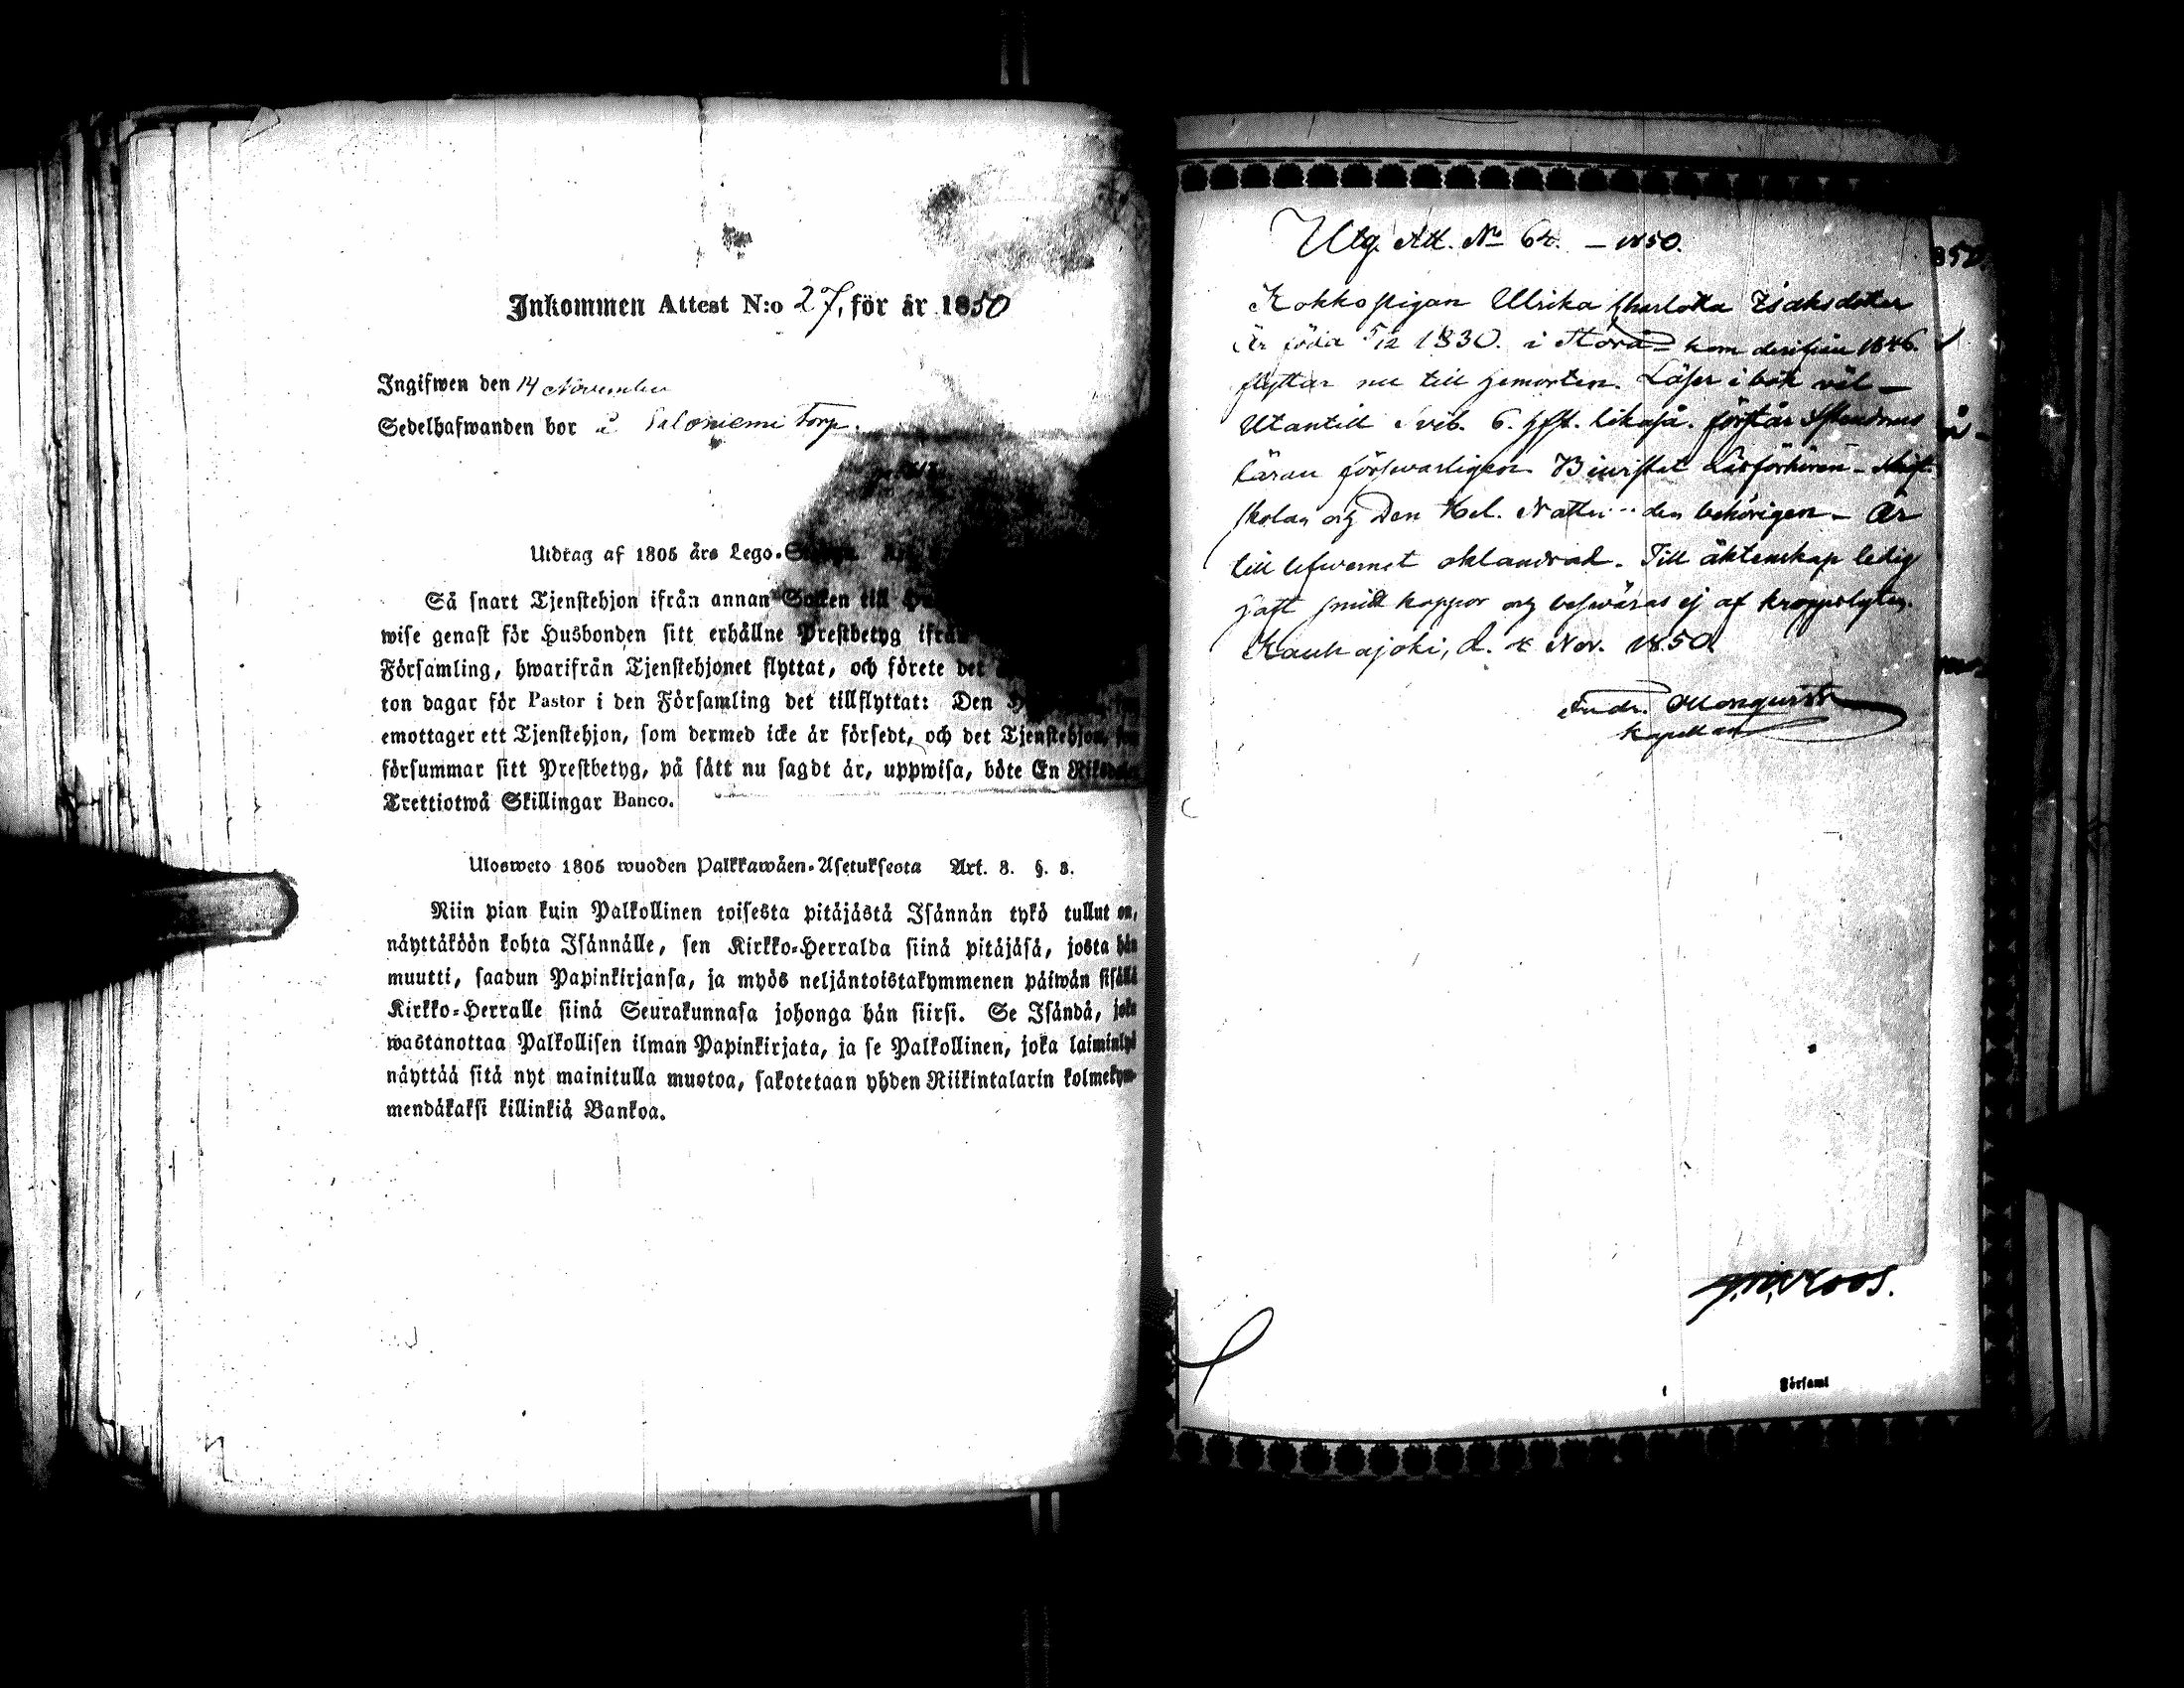 Inkommen Attest N:o 27, för år 1850
Ingifwen den 14 November
Sedelhafwanden bor å Saloniemi torp.
Utdrag af 1805 års Lego-
Så snart Tjenstehjon ifrån annan Socken till
wise genast för Husbonden sitt erhållne Prestbetyg ifrån
Församling, hwarifrån Tjenstehjonet flyttat, och förete det
ton dagar för Pastor i den Församling det tillflyttat: Den
emottager ett Tjenstehjon, som dermed icke är försedt, och det Tjenstehjon, som
försummar sitt Prestbetyg, på sätt nu sagdt är, uppwisa, böte En Riksdaler
Trettiotwå Skillingar Banco.
Ulosweto 1805 wuoden Palkkawäen-Asetuksesta Art. 8. §. 3.
Niin pian kuin Palkollinen toisesta pitäjästä Isännän tykö tullut on,
näyttäköön kohta Isännälle, sen Kirkko-Herralda siinä pitäjäsä, josta hän
muutti, saadun Papinkirjansa, ja myös neljäntoistakymmenen päiwän sisällä
Kirkko-Herralle siinä Seurakunnasa johonga hän siirsi. Se Isändä, joka
wastanottaa Palkollisen ilman Papinkirjata, ja se Palkollinen, joka laiminlyö
näyttää sitä nyt mainitulla muotoa, sakotetaan yhden Riikintalarin kolmekym-
mendäkaksi killinkiä Bankoa.
Utg. Att. No 64. – 1850.
Kokko pigan Ulrika Charlotta Isaksdotter
Är född 5/12 1830. i Storå – kom derifrån 1846.
flyttar nu till hemorten. Läser i bok väl –
Utantill Sveb. 6. hft. likaså. förstår
läran försvarligen. Bevistat Läsförhören – Skrift
skolan och Den Hel. Nattv den behörigen – Är
till lefvernet oklandrad. Till äktenskap ledig
haft koppor och besväras ej af kroppslyten.
Kauhajoki, d. 4 Nov. 1850
Kapellan
Roos.
Församl